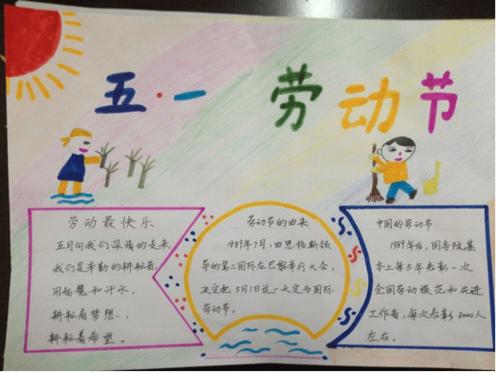 五·一 劳动节
劳动最快乐
五月向我们深情的走来
我们是辛勤的耕耘着
用智慧和汗水,
耕耘着梦想、,
耕耘着希望。
劳动节的由来
1889年7月,由恩格斯领
导的第二国际在巴黎举行大会,
决定把5月1日这一天定为国际
劳动节。
中国的劳动节
1989年后,国务院基
本上每5年表彰一次
全国劳动模范和先进
工作者,每次表彰3000人
左右。